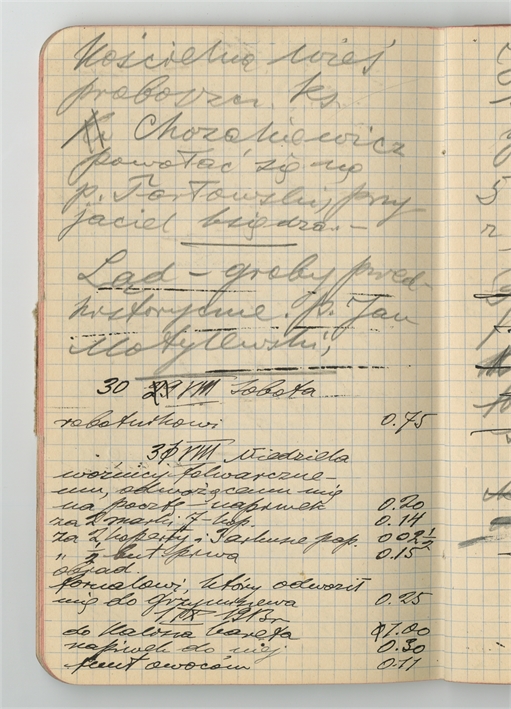 Kościelna wieś
proboszcz ks.
Chozakiewicz
powołać się na
p. Tarłowski, przy
jaciel księdza. –
Ląd – groby pred-
historyczne. p. Jan
Motylewski,
30 VIII Sobota
robotnikowi 0.75
31 VIII Niedziela
woźnicy folwarczne-
mu, odwożącemu mię
na pocztę – napiwek 0.20
za 2 marki 7-kop. 0.14
za 2 koperty i arkusze pap. 0 02½
" ½ but piwa 0.15
objad
fornalowi, który odwoził
mię do Grzymiszewa 0.25
1 IX 1913 r
do Kalisza kareta 1.00
napiwek do niej 0.30
funt owoców 0.11